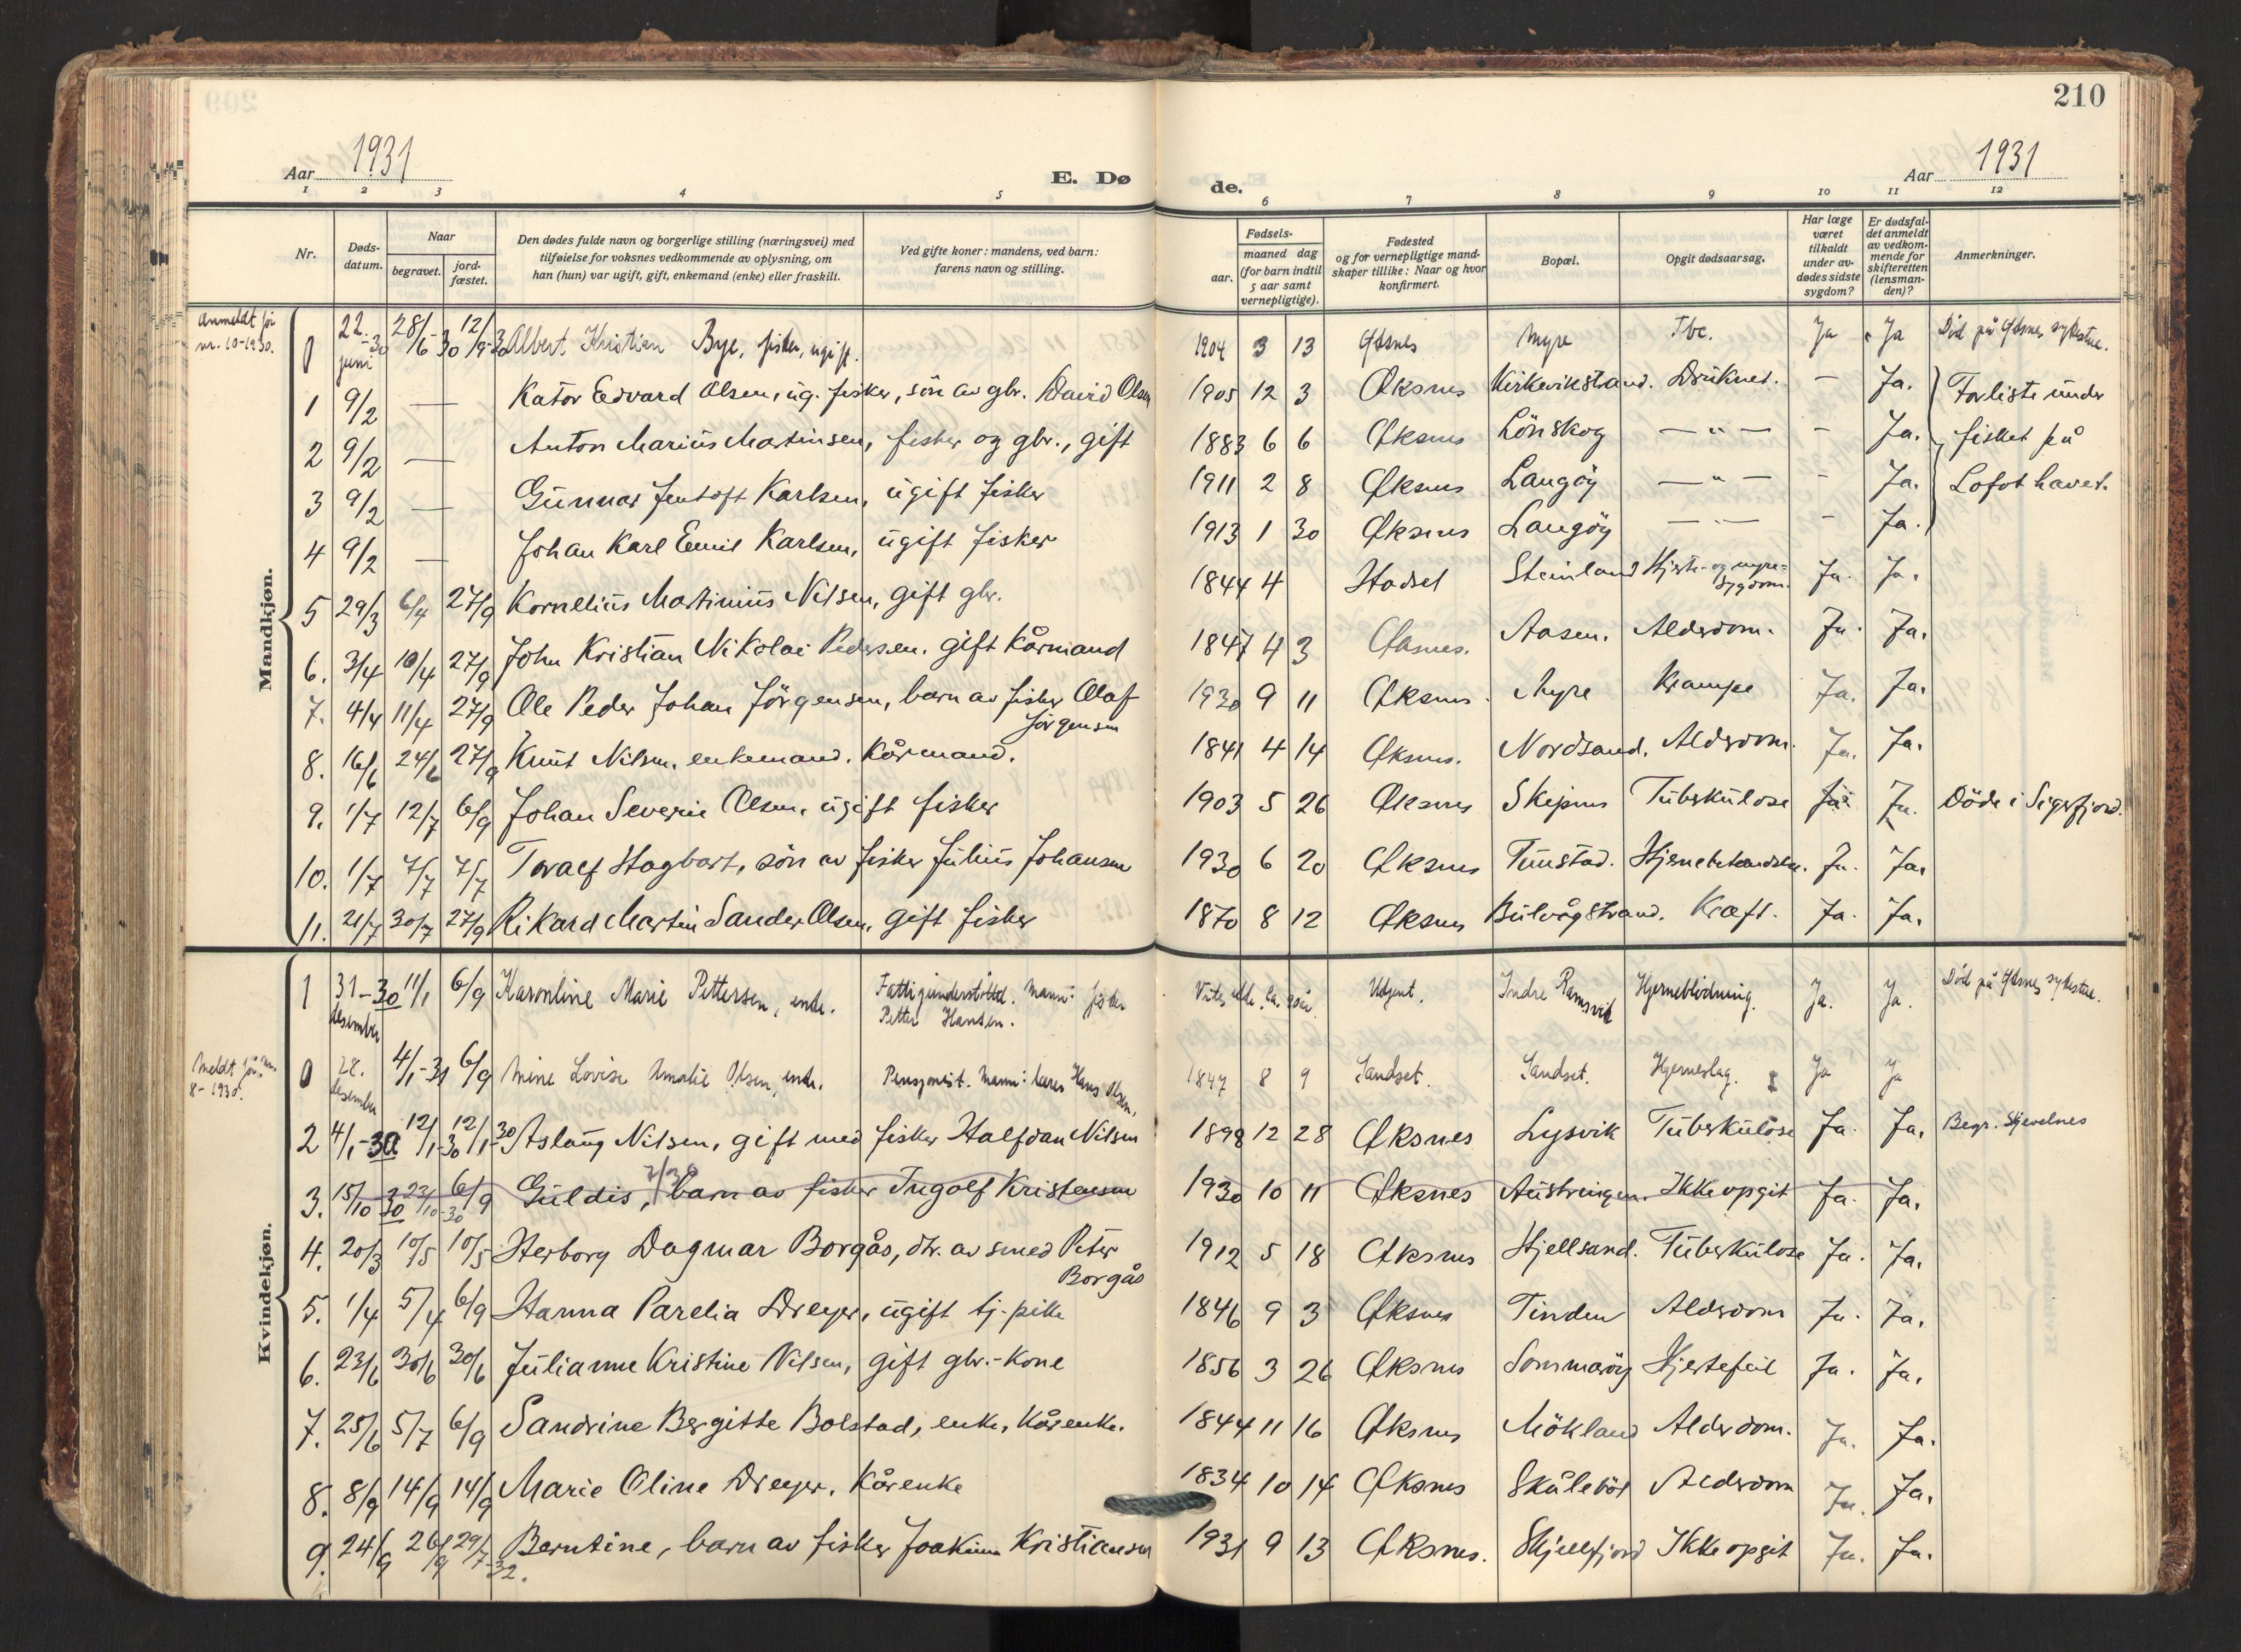 210
Aar 1931
E. Dø
de.
Aar 1931
1 2 3 4 5 6 7 8 9 10 11 12
Nr.
Døds-
datum.
Naar
begravet.
jord-
fæstet.
Den dødes fulde navn og borgerlige stilling (næringsvei) med
tilføielse for voksnes vedkommende av oplysning, om
han (hun) var ugift, gift, enkemand (enke) eller fraskilt.
Ved gifte koner: mandens, ved barn:
farens navn og stilling.
Fødsels-
aar.
maaned dag
(for barn indtil
5 aar samt
vernepligtige).
Fødested
og for vernepligtige mand-
skaper tillike: Naar og hvor
konfirmert.
Bopæl.
Opgit dødsaarsag.
Har læge
været
tilkaldt
under av-
dødes sidste
sygdom?
Er dødsfal-
det anmeldt
av vedkom-
mende for
skifteretten
(lensman-
den)?
Anmerkninger.
Mandkjøn.
Anmeldt før
nr. 10-1930.
0 22. juni -30 28/6-30 12/9-30 Albert Kristian Bye, fisker, ugift. 1904 3 13 Øksnes Myre Tbc. Ja Ja Død på Øksnes sykestue.
1 9/2 — Kator Edvard Olsen, ug. fisker, sön av gbr. David Olsen 1905 12 3 Øksnes Kirkevikstrand. Druknet. — Ja. Forliste under
2 9/2 — Anton Marius Martinsen, fisker og gbr., gift 1883 6 6 Øksnes Lönskog — " — - Ja. fisket på
3 9/2 — Gunnar Jentoft Karlsen, ugift fisker 1911 2 8 Øksnes Langöy — " — - Ja. Lofothavet.
4 9/2 — Johan Karl Emil Karlsen, ugift fisker 1913 1 30 Øksnes Langöy — " — - Ja.
5 29/3 6/4 27/9 Kornelius Martinius Nilsen, gift gbr. 1844 4 Hadsel Steinland Hjerte- og nyre-
sygdom. Ja. Ja.
6. 3/4 10/4 27/9 John Kristian Nikolai Pedersen. gift kårmand 1847 4 3 Øksnes. Aasen. Alderdom. Ja. Ja.
7. 4/4 11/4 27/9 Ole Peder Johan Jörgensen, barn av fisker Olaf
Jörgensen 1930 9 11 Øksnes. Myre Krampe Ja. Ja.
8. 16/6 24/6 27/9 Knut Nilsen, enkemand. Kårmand. 1841 4 14 Øksnes. Nordsand. Alderdom. Ja. Ja.
9. 1/7 12/7 6/9 Johan Severin Olsen, ugift fisker 1903 5 26 Øksnes Skipnes Tuberkulose Ja Ja. Döde i Sigerfjord.
10. 1/7 7/7 7/7 Toralf Hagbart, sön av fisker Julius Johansen 1930 6 20 Øksnes Tunstad. Hjernebetændelse. Ja. Ja.
11. 21/7 30/7 27/9 Rikard Martin Sander Olsen, gift fisker 1870 8 12 Øksnes Bulvågstrand. Kræft. Ja. Ja.
Kvindekjøn.
1 31 desember -30 11/1 6/9 Karonline Marie Pettersen, enke. Fattigunderstöttet. Mann: fisker
Petter Hansen. Ukjent. Indre Ramsvik Hjerneblödning. Ja. Ja. Död på Øksnes sykestue.
Meldt før nr.
8-1930.
0 28. desember 4/1-31 6/9 Mine Lovise Amalie Olsen, enke. Pensjonist. Mann: lærer Hans Olsen. 1847 8 9 Sandset. Sandset. Hjerneslag. Ja Ja
2 4/1-30 12/1-30 12/1-30 Aslaug Nilsen, gift med fisker Halfdan Nilsen 1898 12 28 Øksnes Lysvik Tuberkulose Ja. Ja. Begr. Skjevelnes
3. 15/10 30 23/10-30 6/9 Guldis, barn av fisker Ingolf Kristensen 1930 10 11 Øksnes Austringen. Ikke opgit Ja. Ja.
4. 20/3 10/5 10/5 Herborg Dagmar Borgås, dtr. av smed Peter
Borgås 1912 5 18 Øksnes Hjellsand. Tuberkulose Ja. Ja.
5. 1/4 5/4 6/9 Hanna Parelia Dreyer, ugift tj.pike 1846 9 3 Øksnes Tinden Alderdom Ja. Ja.
6. 23/6 30/6 30/6 Julianne Kristine Nilsen, gift gbr.-kone 1856 3 26 Øksnes Sommaröy Hjertefeil Ja. Ja.
7. 25/6 5/7 6/9 Sandrine Bergitte Bolstad, enke, kårenke. 1844 11 16 Øksnes Mökland Alderdom. Ja. Ja.
8. 8/9 14/9 14/9 Marie Oline Dreyer. Kårenke 1834 10 14 Øksnes Skålebör Alderdom Ja. Ja.
9. 24/9 26/9 29/7-32. Berntine, barn av fisker Joakim Kristiansen 1931 9 13 Øksnes. Skjellfjord Ikke opgit Ja. Ja.